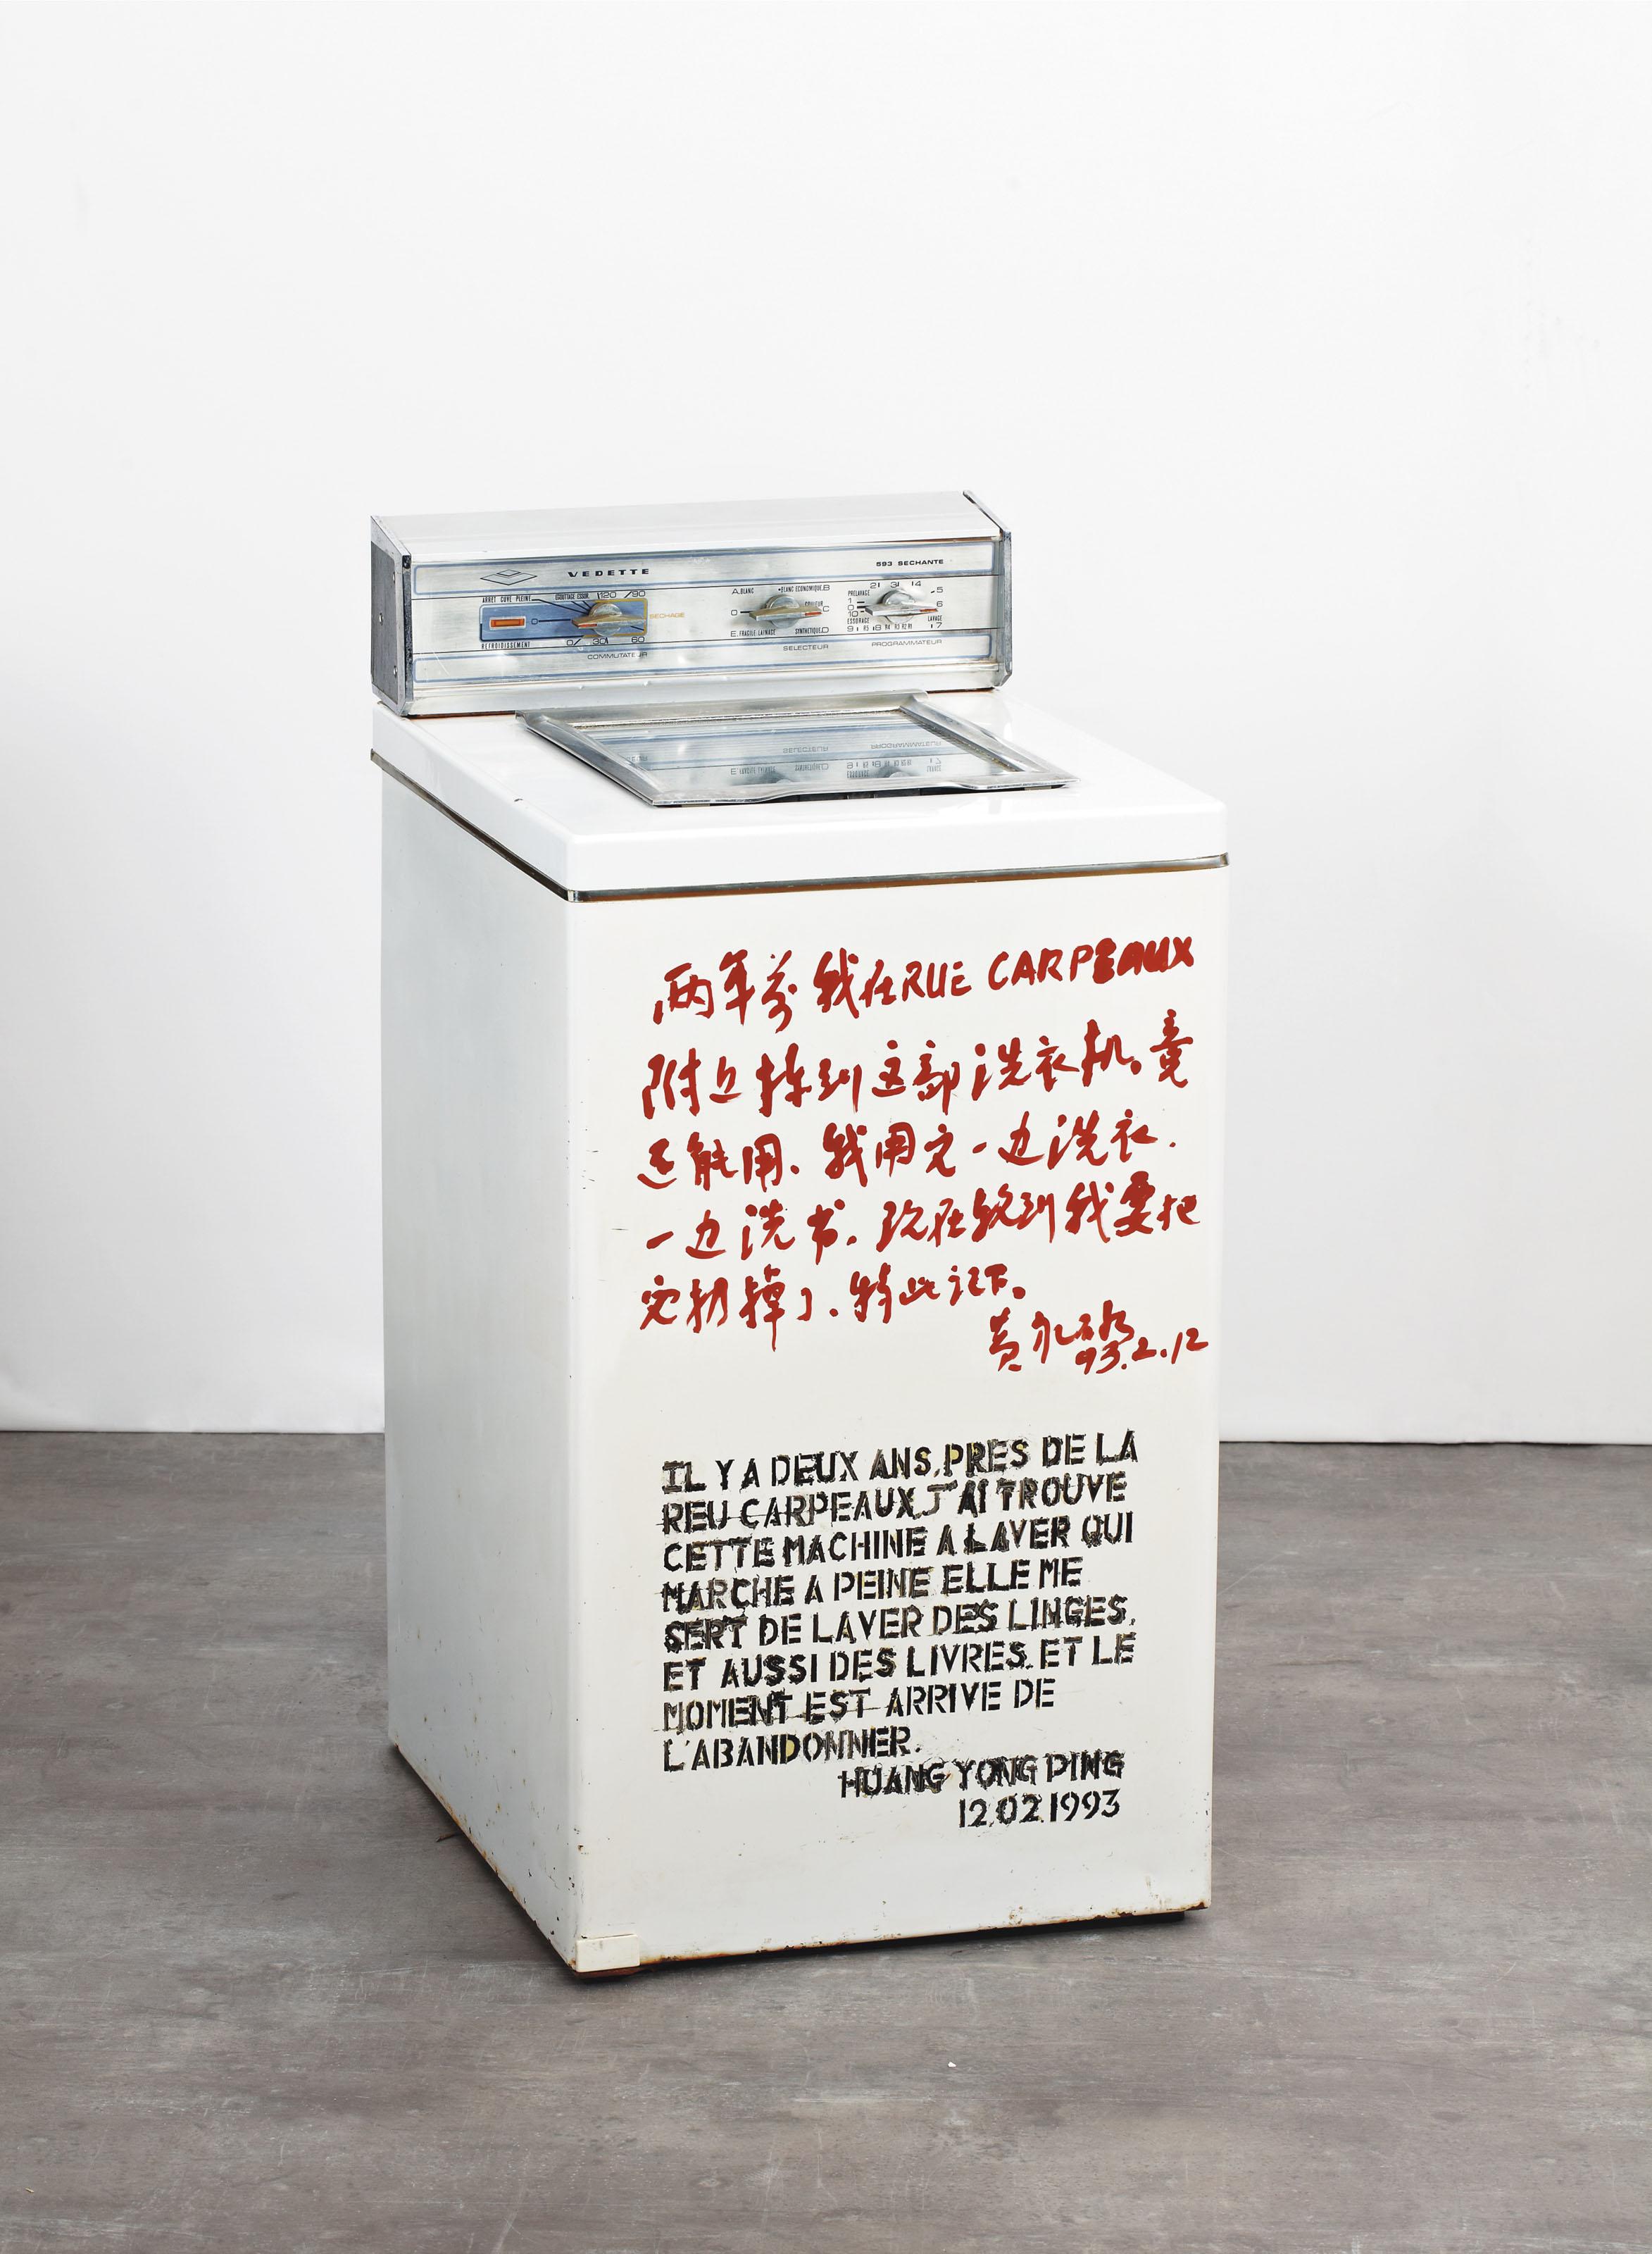 VEDETTE
593 SECHANTE
ARRET CUVE PLEINE
ESSOR. 120 90
A.BLANC
BLANC ECONOMIQUE.B
PRELAVAGE
2 3 4
5
0
SECHAGE
0
C
1
0
10
6
REFROIDISSEMENT
0 30 60
E.FRAGILE LAINAGE
SYNTHETIQUE.D
ESSORAGE
LAVAGE
9 8 7
COMMUTATEUR
SELECTEUR
PROGRAMMATEUR
两年前我在RUE CARPEAUX
附近拣到这部洗衣机。竟
还能用.我用它一边洗衣.
一边洗书.现在轮到我要把
它扔掉了.特此记下。
黄永砯
93.2.12
IL Y A DEUX ANS,PRES DE LA
REU CARPEAUX,J'AI TROUVE
CETTE MACHINE A LAVER QUI
MARCHE A PEINE ELLE ME
SERT DE LAVER DES LINGES,
ET AUSSI DES LIVRES.ET LE
MOMENT EST ARRIVE DE
L'ABANDONNER.
HUANG YONG PING
12.02.1993